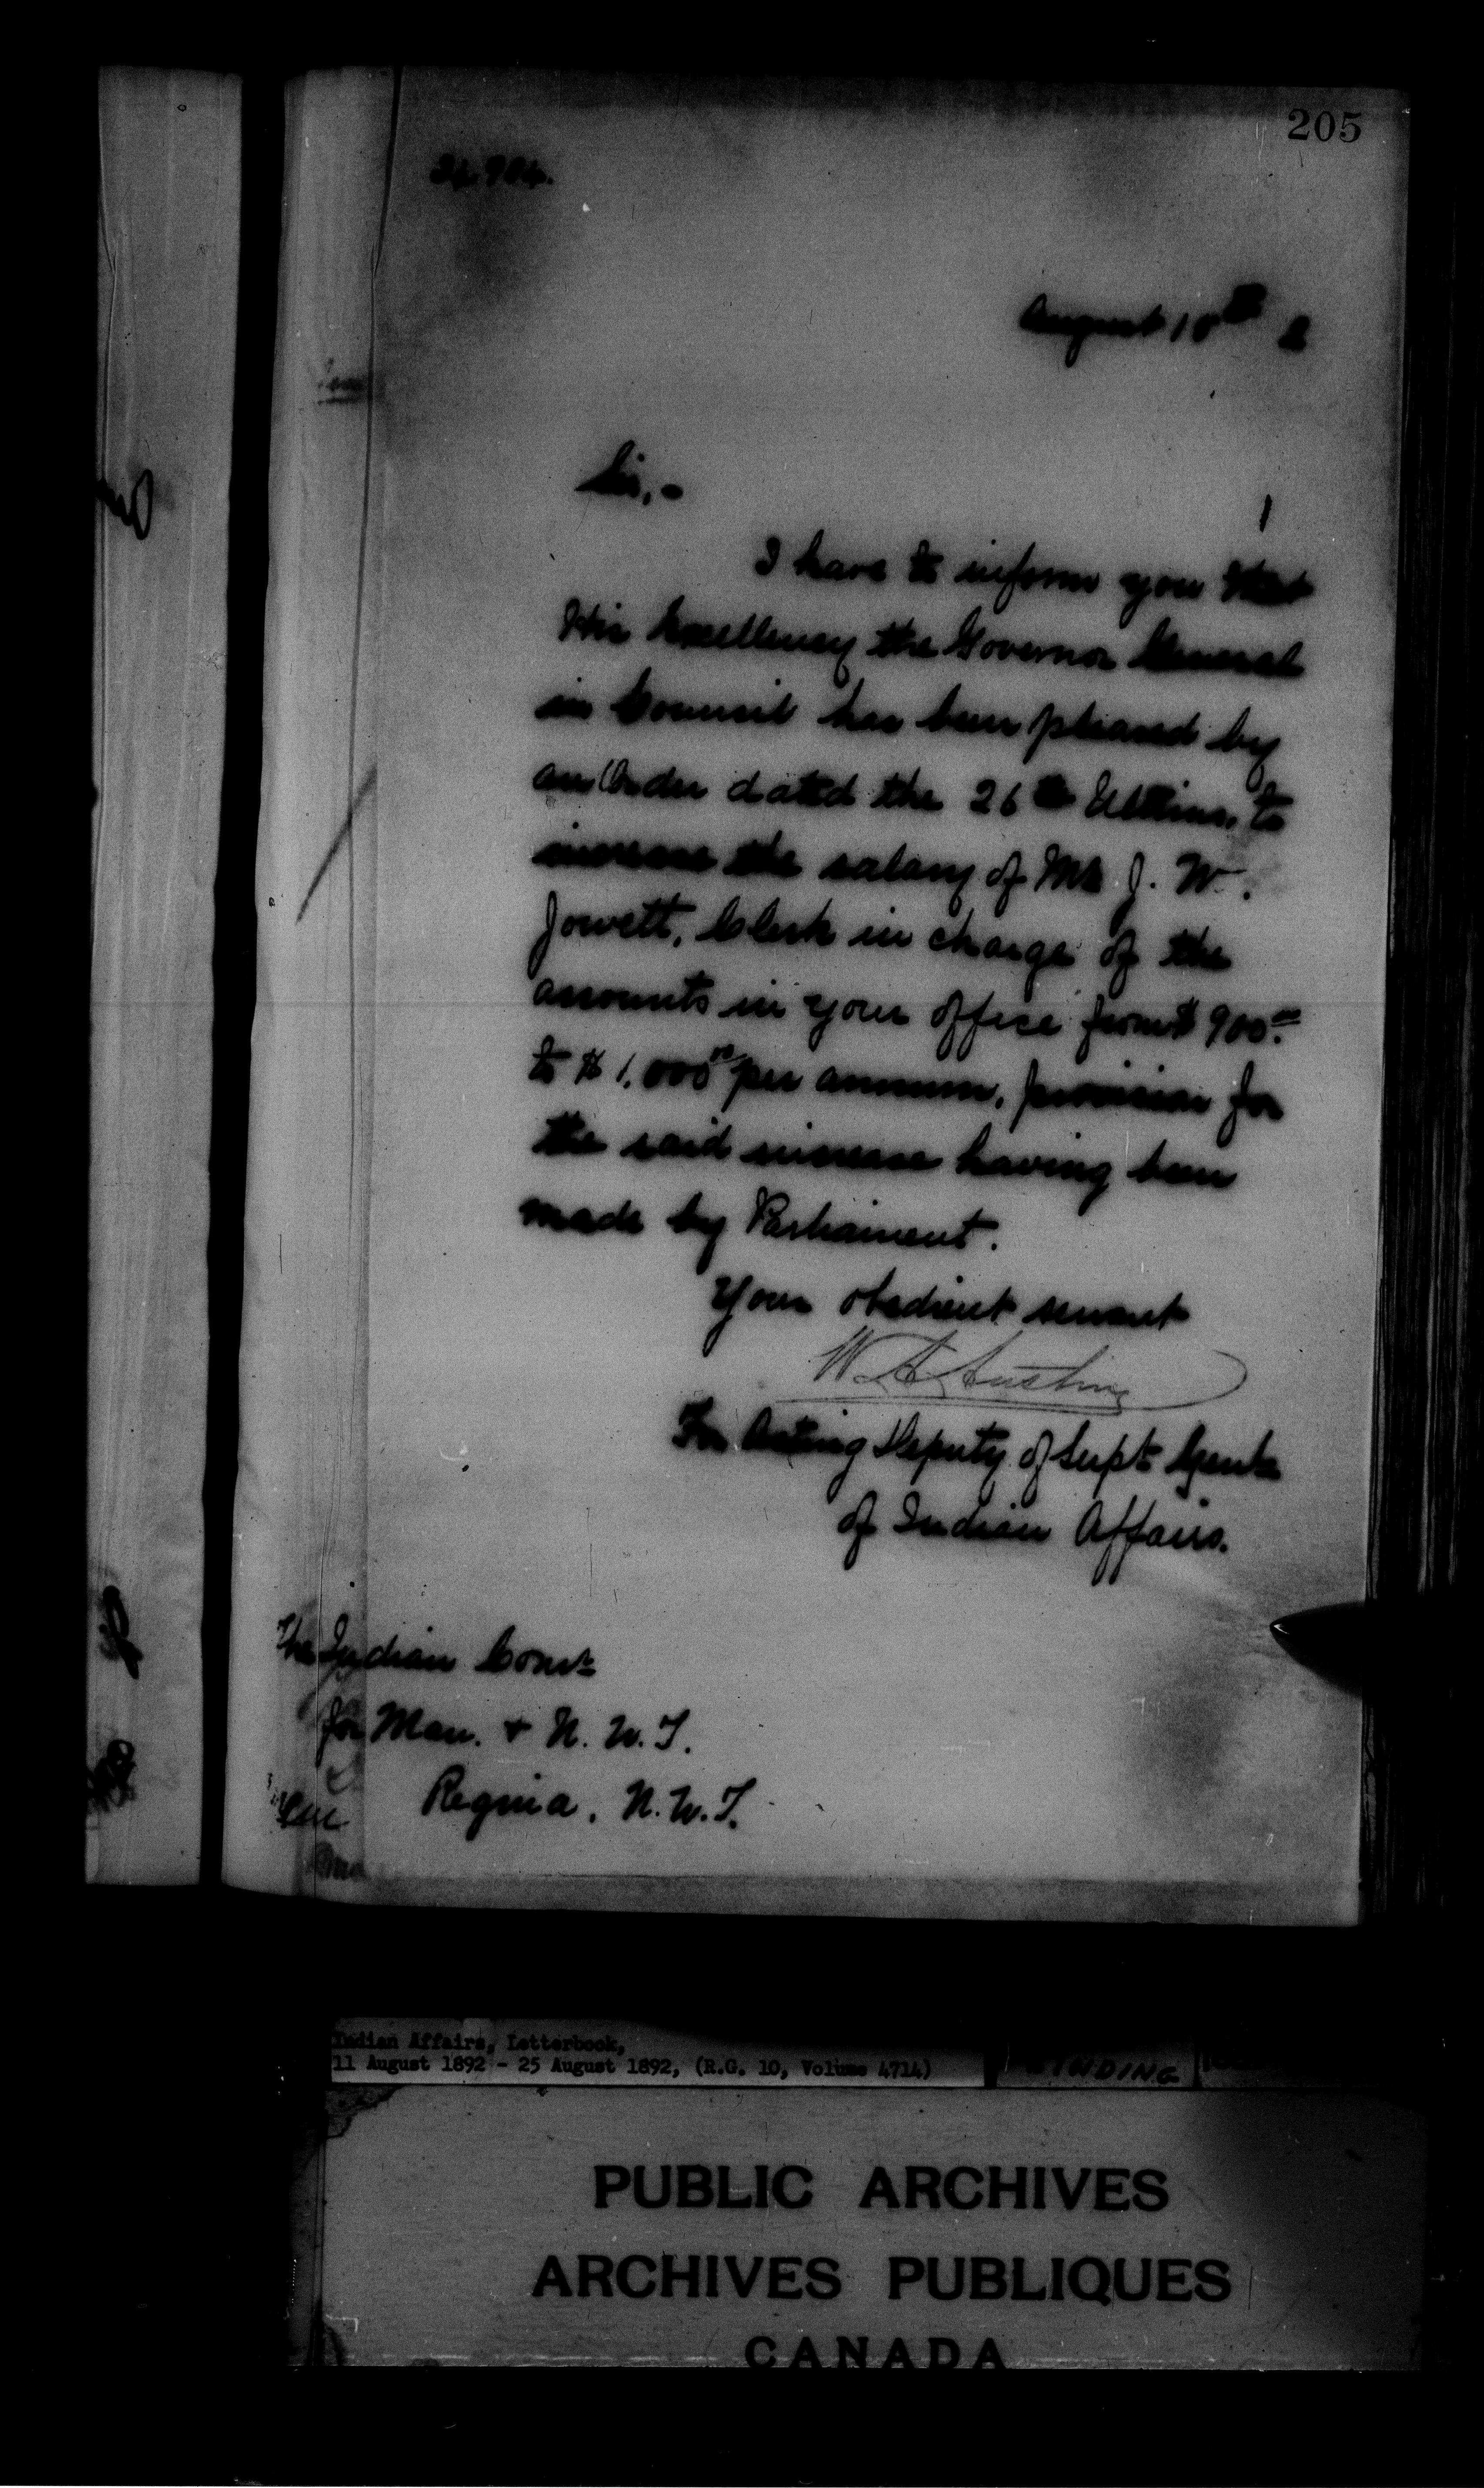 205
August 10th 2
Sir,-
I have to inform you that
His Excellency the Governor General
in Council has been pleased by
an Order dated the 26th Ultimo, to
increase the salary of Mr J. W.
Jowett, Clerk in charge of the
accounts in your office from $ 900.00
to $ 1,000.00 per annum, provision for
the said increase having been
made by Parliament.
Your obedient servant
W. A. Austin
For Acting Deputy of Supt Genl
of Indian Affairs.
The Indian Comr
for Man. + N. W. T.
Regina, N. W. T.
Indian Affairs, Letterbook,
11 August 1892 - 25 August 1892, (R.G. 10, Volume 4714)
PUBLIC ARCHIVES
ARCHIVES PUBLIQUES
CANADA